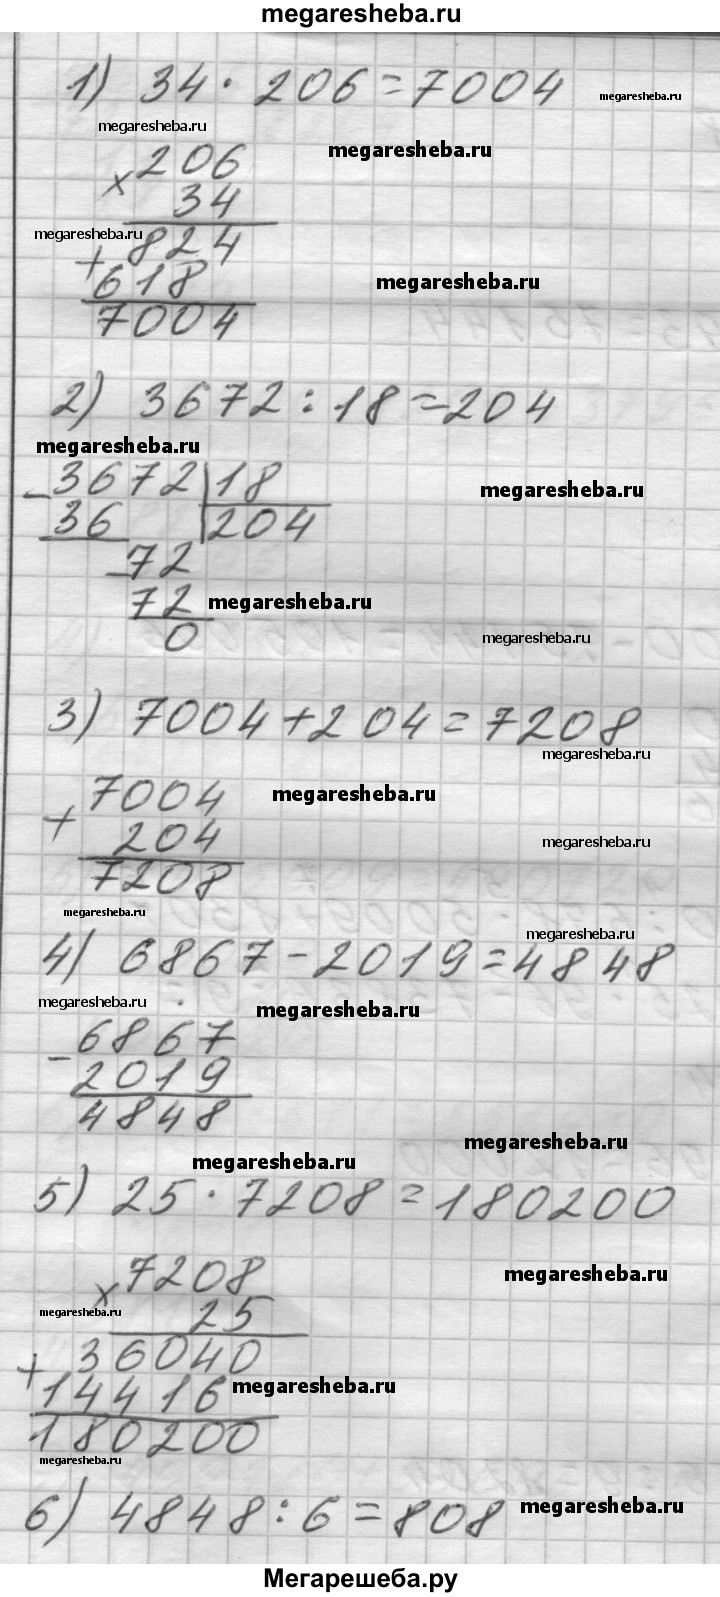 megaresheba.ru
1) 34 · 206 = 7004
megaresheba.ru
megaresheba.ru
206
megaresheba.ru
× 34
megaresheba.ru
824
+ 618
megaresheba.ru
7004
2) 3672 : 18 = 204
megaresheba.ru
- 3672 | 18
megaresheba.ru
36 | 204
- 72
72
megaresheba.ru
0
megaresheba.ru
3) 7004 + 204 = 7208
megaresheba.ru
7004
megaresheba.ru
+ 204
megaresheba.ru
7208
megaresheba.ru
megaresheba.ru
4) 6867 - 2019 = 4848
megaresheba.ru
megaresheba.ru
- 6867
2019
4848
megaresheba.ru
megaresheba.ru
5) 25 · 7208 = 180200
× 7208
megaresheba.ru
megaresheba.ru
25
36040
+ 14416
megaresheba.ru
180200
megaresheba.ru
6) 4848 : 6 = 808
megaresheba.ru
Мегарешеба.ру